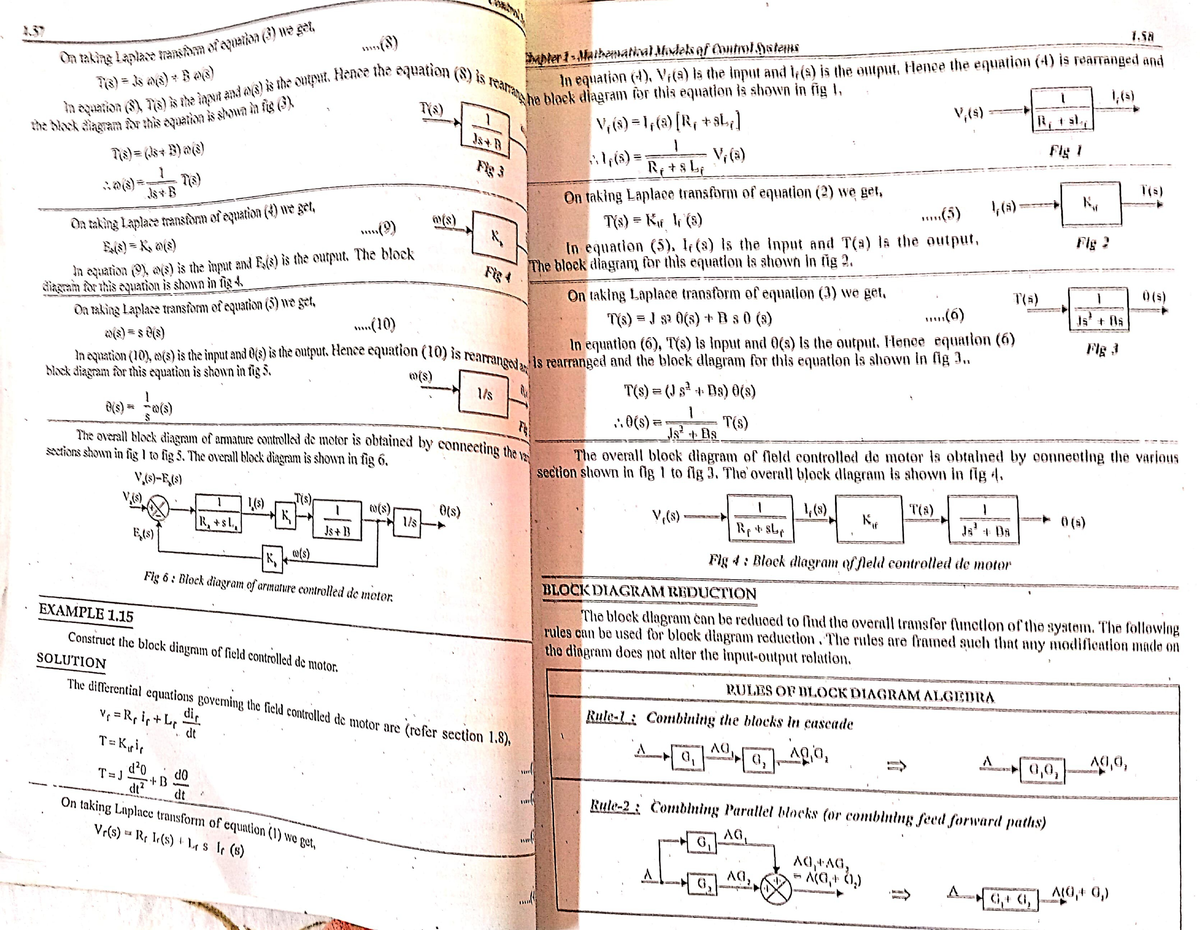 1.57
Control
On taking Laplace transform of equation (3) we get,
T(s) = Js ω(s) + B ω(s) .....(8)
In equation (8), T(s) is the input and ω(s) is the output. Hence the equation (8) is rearranged
the block diagram for this equation is shown in fig (3).
T(s) = (Js + B) ω(s)
∴ ω(s) = 1/(Js + B) T(s)
T(s)
1/(Js + B)
Fig 3
On taking Laplace transform of equation (4) we get,
E_b(s) = K_b ω(s) .....(9)
In equation (9), ω(s) is the input and E_b(s) is the output. The block
diagram for this equation is shown in fig 4.
ω(s)
K_b
Fig 4
On taking Laplace transform of equation (5) we get,
ω(s) = s θ(s) .....(10)
In equation (10), ω(s) is the input and θ(s) is the output. Hence equation (10) is rearranged and
block diagram for this equation is shown in fig 5.
θ(s) = 1/s ω(s)
ω(s)
1/s
The overall block diagram of armature controlled dc motor is obtained by connecting the
sections shown in fig 1 to fig 5. The overall block diagram is shown in fig 6.
V_a(s)–E_b(s)
V_a(s) 1/(R_a + sL_a) I_a(s) K_t T(s) 1/(Js + B) ω(s) 1/s θ(s)
E_b(s)
K_b ω(s)
Fig 6 : Block diagram of armature controlled dc motor.
EXAMPLE 1.15
Construct the block diagram of field controlled dc motor.
SOLUTION
The differential equations governing the field controlled dc motor are (refer section 1.8),
v_f = R_f i_f + L_f di_f/dt
T = K_tf i_f
T = J d²θ/dt² + B dθ/dt
On taking Laplace transform of equation (1) we get,
V_f(s) = R_f I_f(s) + L_f s I_f (s)
Chapter 1 - Mathematical Models of Control Systems
1.58
In equation (4), V_f(s) is the input and I_f(s) is the output. Hence the equation (4) is rearranged and
the block diagram for this equation is shown in fig 1.
V_f(s) = I_f(s) [R_f + sL_f]
∴ I_f(s) = 1/(R_f + s L_f) V_f(s)
V_f(s) 1/(R_f + sL_f) I_f(s)
Fig 1
On taking Laplace transform of equation (2) we get,
T(s) = K_tf I_f (s) .....(5)
In equation (5), I_f(s) is the input and T(s) is the output.
The block diagram for this equation is shown in fig 2.
I_f(s) K_tf T(s)
Fig 2
On taking Laplace transform of equation (3) we get,
T(s) = J s² θ(s) + B s θ (s) .....(6)
In equation (6), T(s) is input and θ(s) is the output. Hence equation (6)
is rearranged and the block diagram for this equation is shown in fig 3..
T(s) 1/(Js² + Bs) θ(s)
Fig 3
T(s) = (J s² + Bs) θ(s)
∴ θ(s) = 1/(Js² + Bs) T(s)
The overall block diagram of field controlled dc motor is obtained by connecting the various
section shown in fig 1 to fig 3. The overall block diagram is shown in fig 4.
V_f(s) 1/(R_f + sL_f) I_f(s) K_tf T(s) 1/(Js² + Bs) θ (s)
Fig 4 : Block diagram of field controlled dc motor
BLOCK DIAGRAM REDUCTION
The block diagram can be reduced to find the overall transfer function of the system. The following
rules can be used for block diagram reduction . The rules are framed such that any modification made on
the diagram does not alter the input-output relation.
RULES OF BLOCK DIAGRAM ALGEBRA
Rule-1 : Combining the blocks in cascade
A G₁ AG₁ G₂ AG₁G₂ ⇒ A G₁G₂ AG₁G₂
Rule-2 : Combining Parallel blocks (or combining feed forward paths)
G₁ AG₁
AG₁+AG₂
= A(G₁+ G₂)
A G₂ AG₂ ⇒ A G₁+ G₂ A(G₁+ G₂)